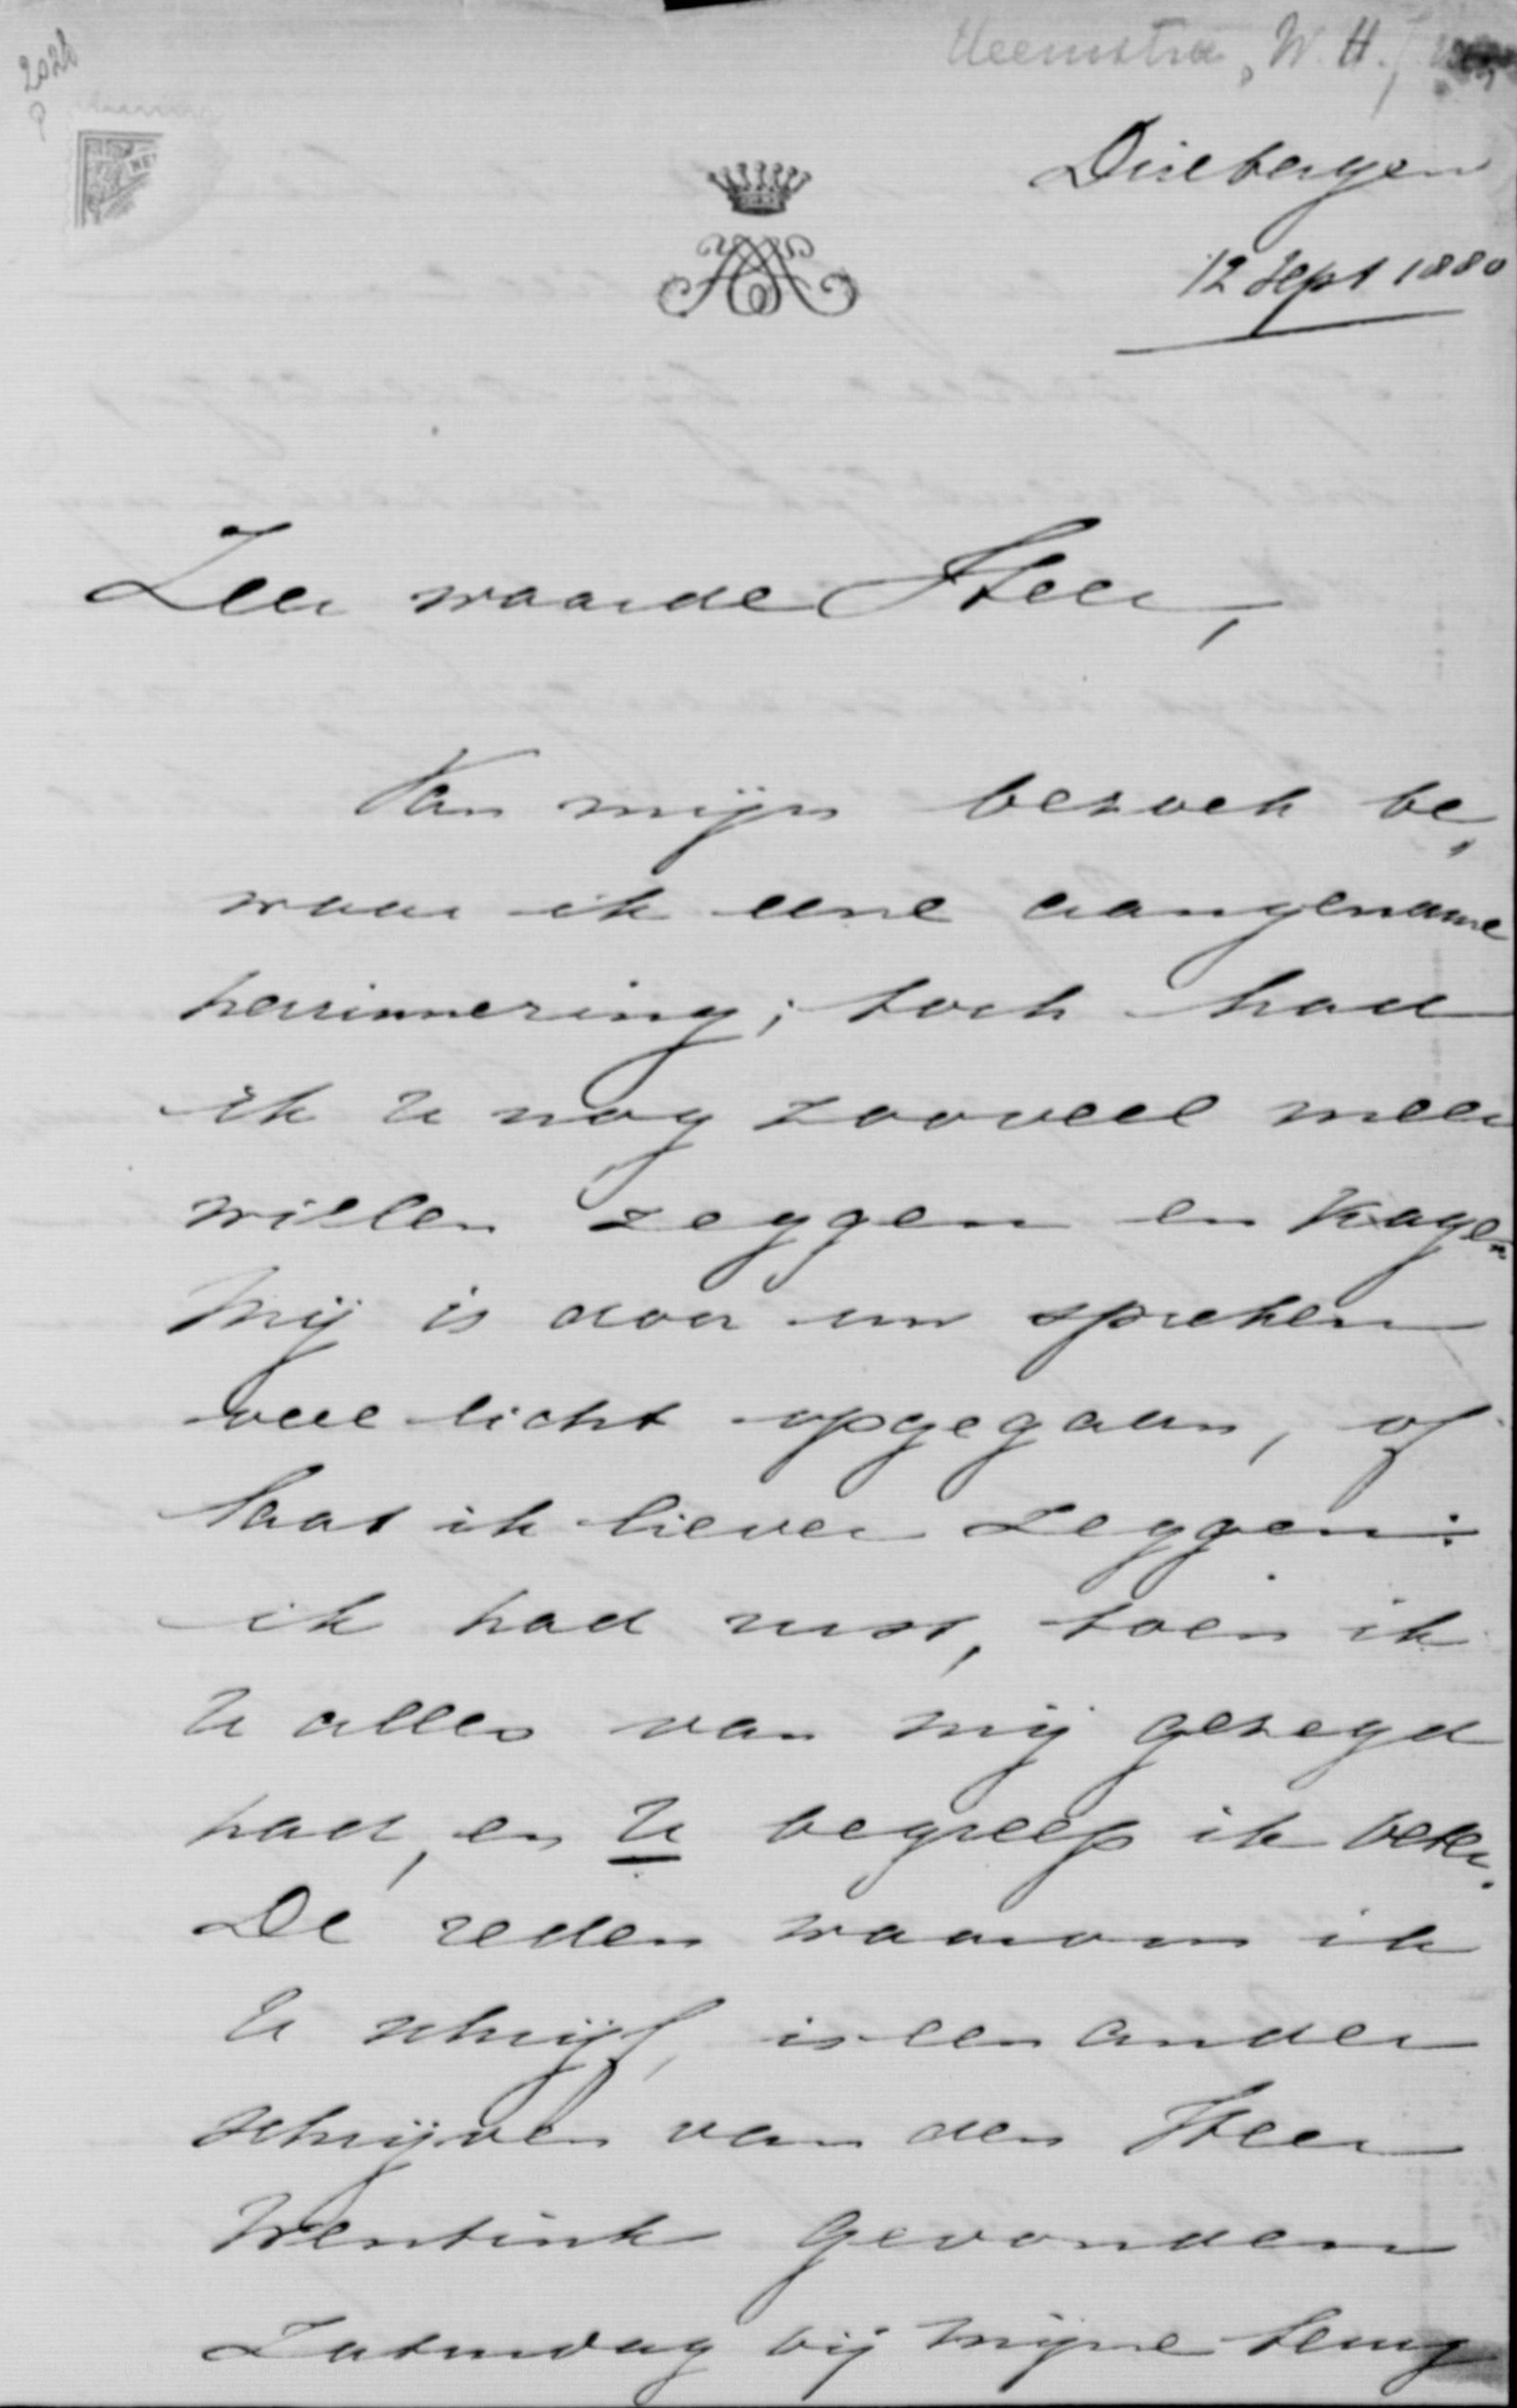 Heemstra, W. H.
Driebergen
12 Sept 1880
Zeer waarde Heer,
Van mijn bezoek be„
waar ik eene aangename
herrinnering; toch had
ik U nog zooveel meer
willen zeggen en vragen.
Mij is door uw spreken
veel licht opgegaan, of
laat ik liever zeggen:
ik had rust, toen ik
U alles van mij gezegd
had, en U begreep ik beter.
De reden waarom ik
U schrijf, is een ander
schrijven van den Heer
Wentink gevonden
Zaturdag bij mijne terug